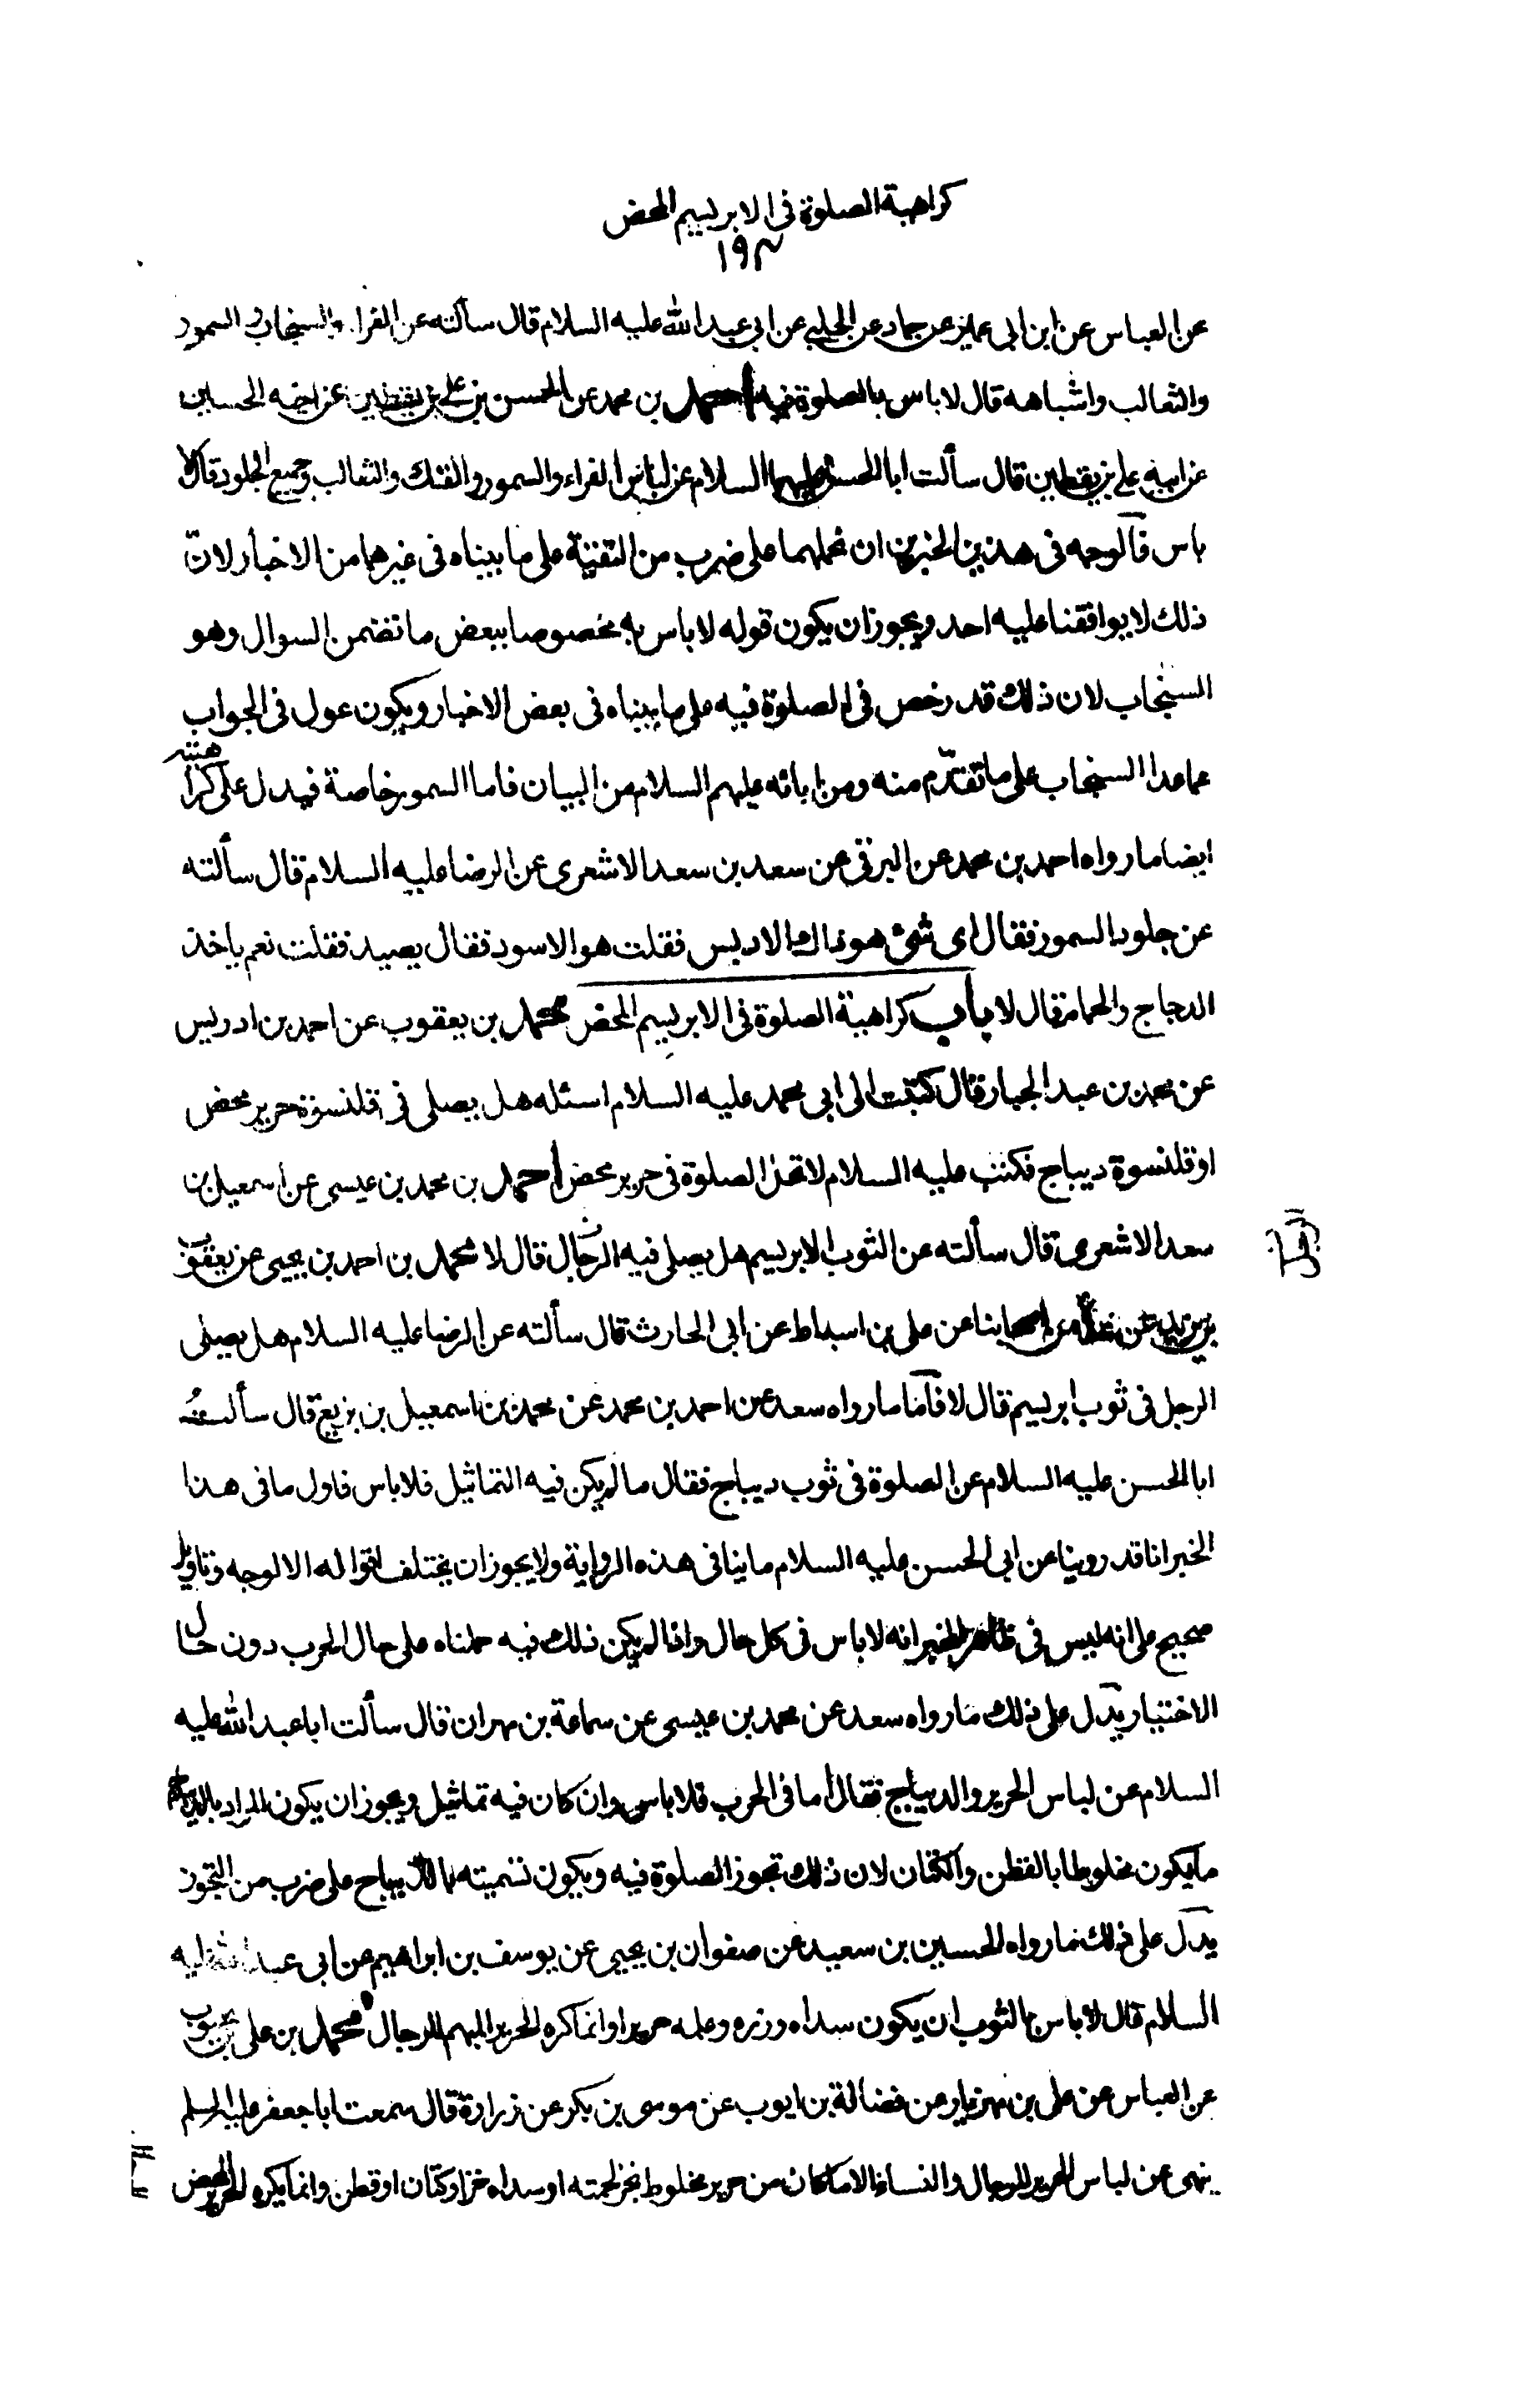 كراهية الصلوة فى الابريسم المحض
١٩٣
عن العباس عن ابن ابى عمير عن حماد عن الحلبي عن ابي عبد الله عليه السلام قال سألته عن الفراء والسنجاب والسمور
والثعالب واشباهه قال لا باس بالصلوة فيه احمد بن محمد عن الحسن بن على بن يقطين عن اخيه الحسين
عن ابيه على بن يقطين قال سألت ابا الحسن عليه السلام عن لباس الفراء والسمور والفنك والثعالب وجميع الجلود قال لا
باس فالوجه فى هذين الخبرين ان نحملهما على ضرب من التقيّة على ما بيناه فى غيرهما من الاخبار لانّ
ذلك لا يوافقنا عليه احد ويجوز ان يكون قوله لا باس به مخصوصا ببعض ما تضمن السوال وهو
السنجاب لان ذلك قد رخص فى الصلوة فيه على ما بيناه فى بعض الاخبار ويكون عول فى الجواب
عما عدا السنجاب على ما تقدّم منه ومن ابائه عليهم السلام من البيان فاما السمور خاصة فيدل على كراهيته
ايضا ما رواه احمد بن محمد عن البرقى عن سعد بن سعد الاشعرى عن الرضا عليه السلام قال سألته
عن جلود السمور فقال اى شئ هو ذاك الادبس فقلت هو الاسود فقال يصيد فقلت نعم ياخذ
الدجاج والحمام قال لا باب كراهية الصلوة فى الابريسم المحض محمد بن يعقوب عن احمد بن ادريس
عن محمد بن عبد الجبار قال كتبت الى ابى محمد عليه السلام اسئله هل يصلى فى قلنسوة حرير محض
او قلنسوة ديباج فكتب عليه السلام لا تحل الصلوة فى حرير محض احمد بن محمد بن عيسى عن اسمعيل بن
سعد الاشعرى قال سألته عن الثوب الابريسم هل يصلى فيه الرجال قال لا محمد بن احمد بن يحيى عن يعقوب
بن يزيد عن عدة من اصحابنا عن على بن اسباط عن ابى الحارث قال سألته عن الرضا عليه السلام هل يصلى
الرجل فى ثوب ابريسم قال لا فاما ما رواه سعد عن احمد بن محمد عن محمد بن اسمعيل بن بزيع قال سألت
ابا الحسن عليه السلام عن الصلوة فى ثوب ديباج فقال ما لم يكن فيه التماثيل فلا باس فاول ما فى هذا
الخبر انا قد روينا عن ابى الحسن عليه السلام ما ينافى هذه الرواية ولا يجوز ان يختلف اقواله الا لوجه وتاويل
صحيح على انه ليس فى ظاهر الخبر انه لا باس فى كل حال واذا لم يكن ذلك فيه حملناه على حال الحرب دون حال
الاختيار يدل على ذلك ما رواه سعد عن محمد بن عيسى عن سماعة بن مهران قال سألت ابا عبد الله عليه
السلام عن لباس الحرير والديباج فقال أما فى الحرب فلا باس وان كان فيه تماثيل ويجوز ان يكون المراد بالديباج
ما يكون مخلوطا بالقطن والكتان لان ذلك تجوز الصلوة فيه ويكون تسميته بالديباج على ضرب من التجوز
يدل على ذلك ما رواه الحسين بن سعيد عن صفوان بن يحيى عن يوسف بن ابراهيم عن ابى عبد الله عليه
السلام قال لا باس بالثوب ان يكون سداه وزره وعلمه حريرا وانما كره الحرير المبهم للرجال محمد بن على بن محبوب
عن العباس عن على بن مهزيار عن فضالة بن ايوب عن موسى بن بكر عن زرارة قال سمعت ابا جعفر عليه السلم
ينهى عن لباس الحرير للرجال والنساء الا ما كان من حرير مخلوط بخز لحمته او سداه خز او كتان او قطن وانما يكره الحرير المحض